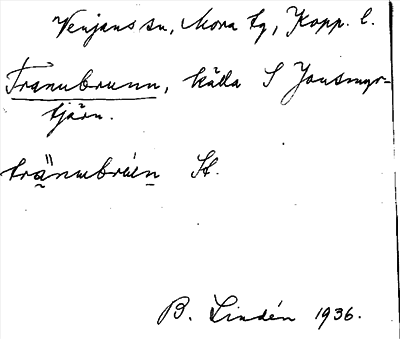 Venjans sn, Mora tg, Kopp. l.
Trännbrunn, källa S Jonsmyr-
tjärn.
trännbrúen St.
B. Lindén 1936.